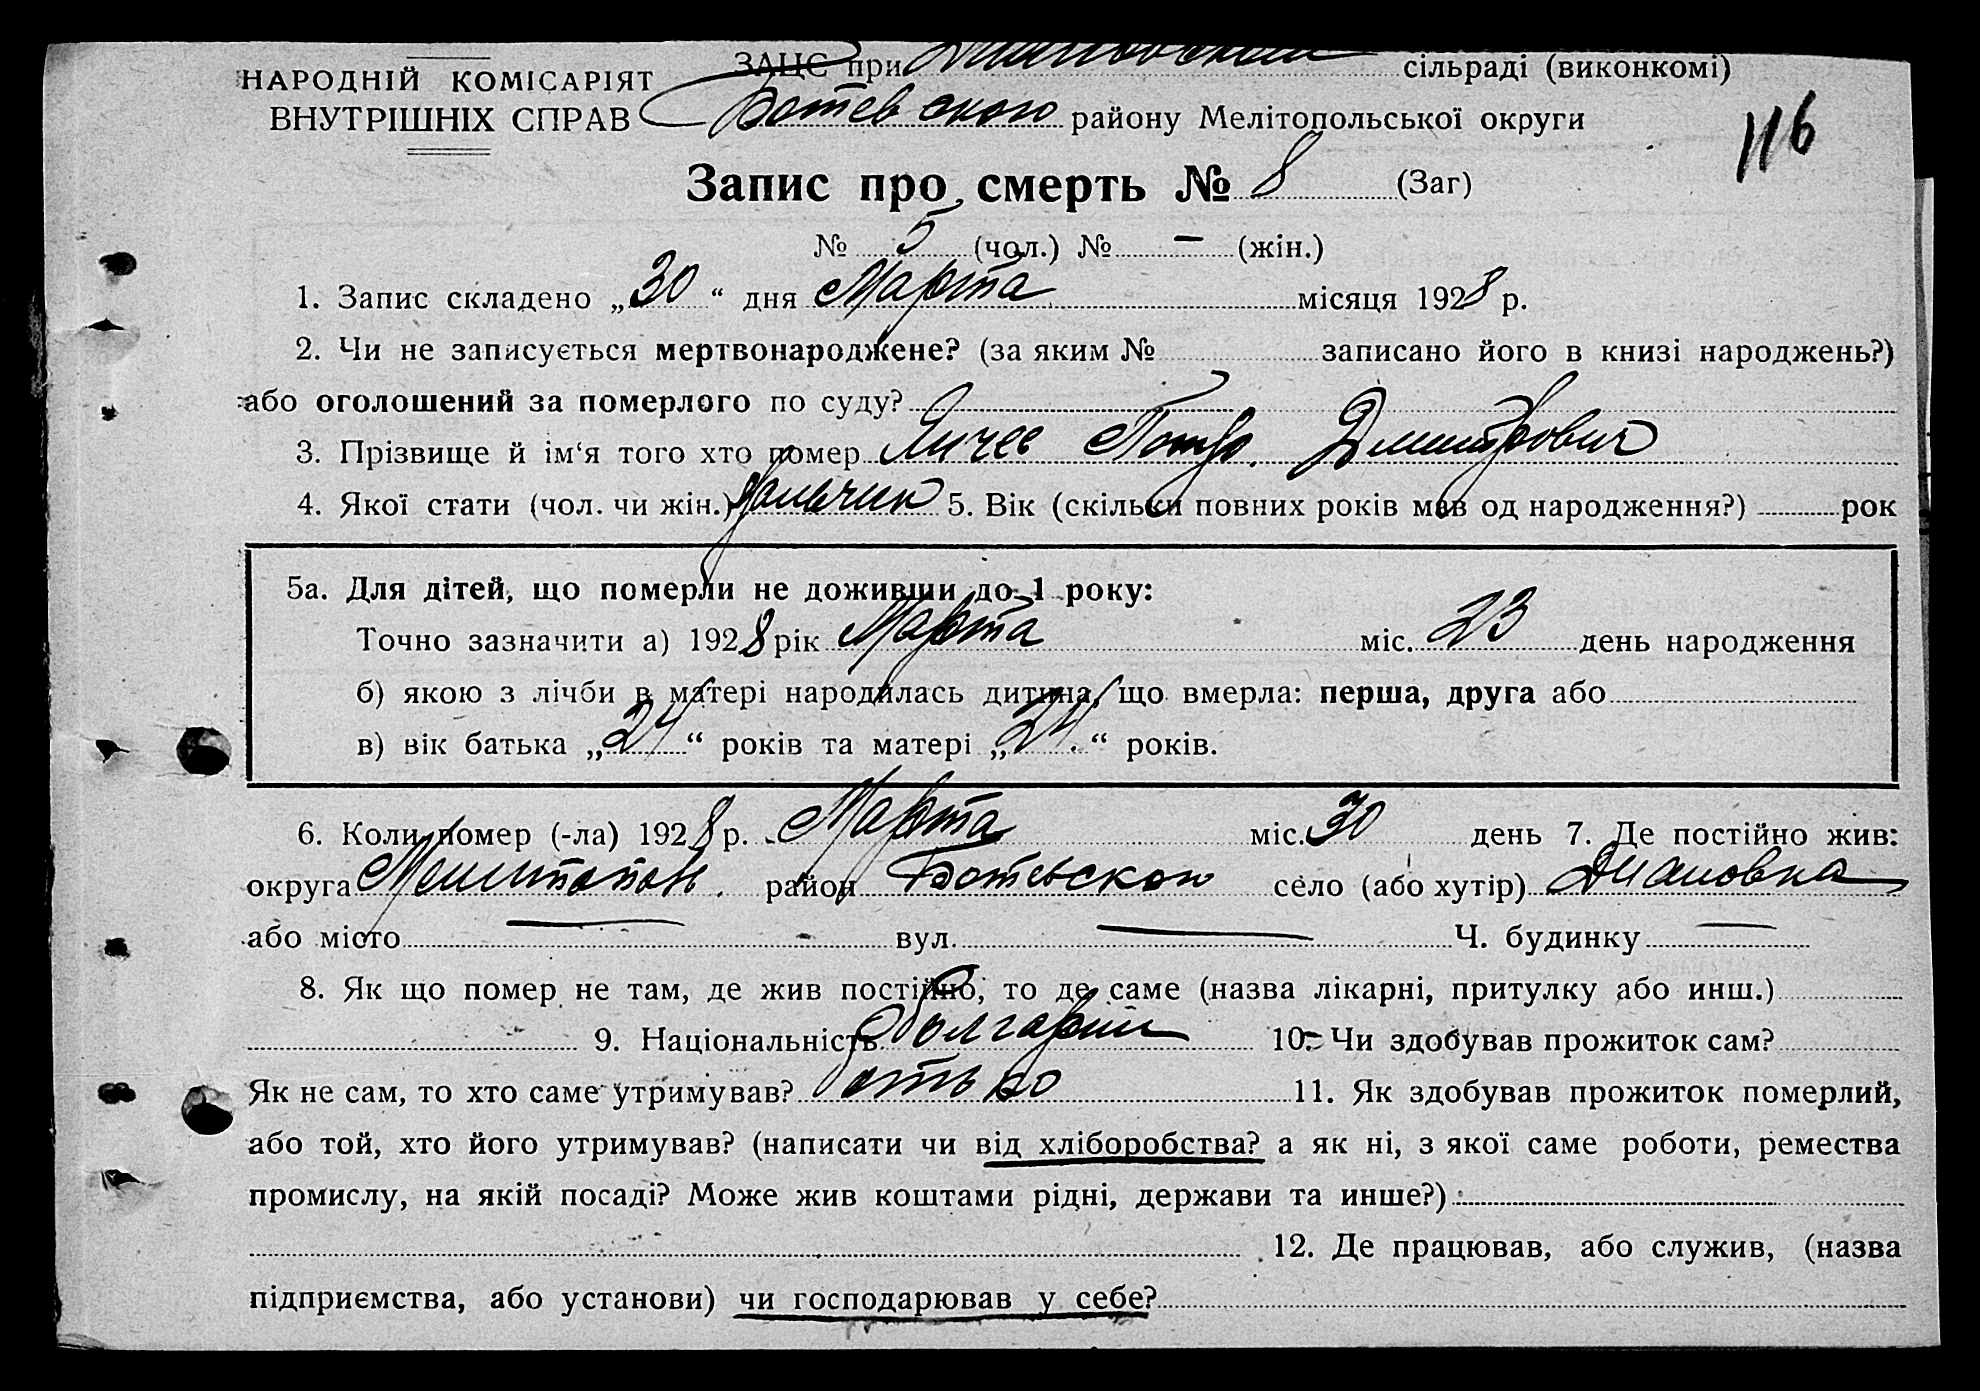 НАРОДНІЙ КОМІСАРІЯТ
ВНУТРІШНІХ СПРАВ
ЗАЦС при сільраді (виконкомі)
Ботевского району Мелітопольської округи
116
Запис про смерть № 8 (Заг)
№ 5 (чол.) № — (жін.)
1. Запис складено „30“ дня Марта місяця 1928 р.
2. Чи не записується мертвонароджене? (за яким № записано його в книзі народжень?)
або оголошений за померлого по суду?
3. Прізвище й ім‘я того хто помер Янчев Петр. Дмитрович
4. Якої стати (чол. чи жін.) мальчик 5. Вік (скільки повних років мав од народження?) рок
5а. Для дітей, що померли не доживши до 1 року:
Точно зазначити а) 1928 рік Марта міс. 23 день народження
б) якою з лічби в матері народилась дитина, що вмерла: перша, друга або
в) вік батька „24“ років та матері „24“ років.
6. Коли помер (-ла) 1928 р. Марта міс. 30 день 7. Де постійно жив:
округа Мелитопол. район Ботевского село (або хутір) Диановка
або місто — вул. — Ч. будинку —
8. Як що помер не там, де жив постійно, то де саме (назва лікарні, притулку або инш.)
9. Національність болгарин 10. Чи здобував прожиток сам?
Як не сам, то хто саме утримував? отець 11. Як здобував прожиток померлий,
або той, хто його утримував? (написати чи від хліборобства? а як ні, з якої саме роботи, ремества
промислу, на якій посаді? Може жив коштами рідні, держави та инше?)
12. Де працював, або служив, (назва
підприємства, або установи) чи господарював у себе?